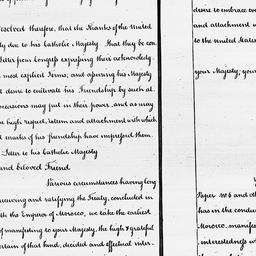 esolved therefore, that the Thanks of the United
ly due to his Catholic Majesty. That they be con
Letter from Congress expressing their acknowledg-
most explicit Terms; and assuring his Majesty
desire to cultivate his Friendship by such at-
occasions may put in their power, and as may
he high respect, esteem and attachment with which
marks of his friendship have impressed them.
Letter to his Catholic Majesty
and beloved Friend
Various circumstances having long
receiving and ratifying the Treaty, concluded in
th the Emperor of Morocco, we take the earliest
of manifesting to your Majesty, the high & grateful
ertain of that kind, decided and effectual inter-
desire to embrace eve
and attachment w
to the United States
your Majesty; your
Paper No 6 and oth
has in the conduct
Morocco, manifes
interestedness w